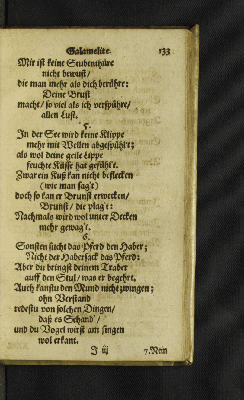 Galamelite. 133
Mir ist keine Stubenthüre
nicht bewust/
die man mehr als dich berühre:
Deine Brust
macht/ so viel als ich verspühre/
allen Lust.
5.
In der See wird keine Klippe
mehr mit Wellen abgespühlt;
als wol deine geile Lippe
feuchte Küsse hat gefühlt.
Zwar ein Kuß kan nicht beflecken
(wie man sag't)
doch so kan er Brunst erwecken/
Brunst/ die plag't:
Nachmals wird wol unter Decken
mehr gewag't.
6.
Sonsten sucht das Pferd den Haber;
Nicht der Habersack das Pferd:
Aber du bringst deinem Traber
auff den Stul/ was er begehrt.
Auch kanstu den Mund nicht zwingen;
ohn Verstand
redestu von solchen Dingen/
daß es Schand'/
und du Vogel wirst am singen
wol erkant.
I iij 7. Mein